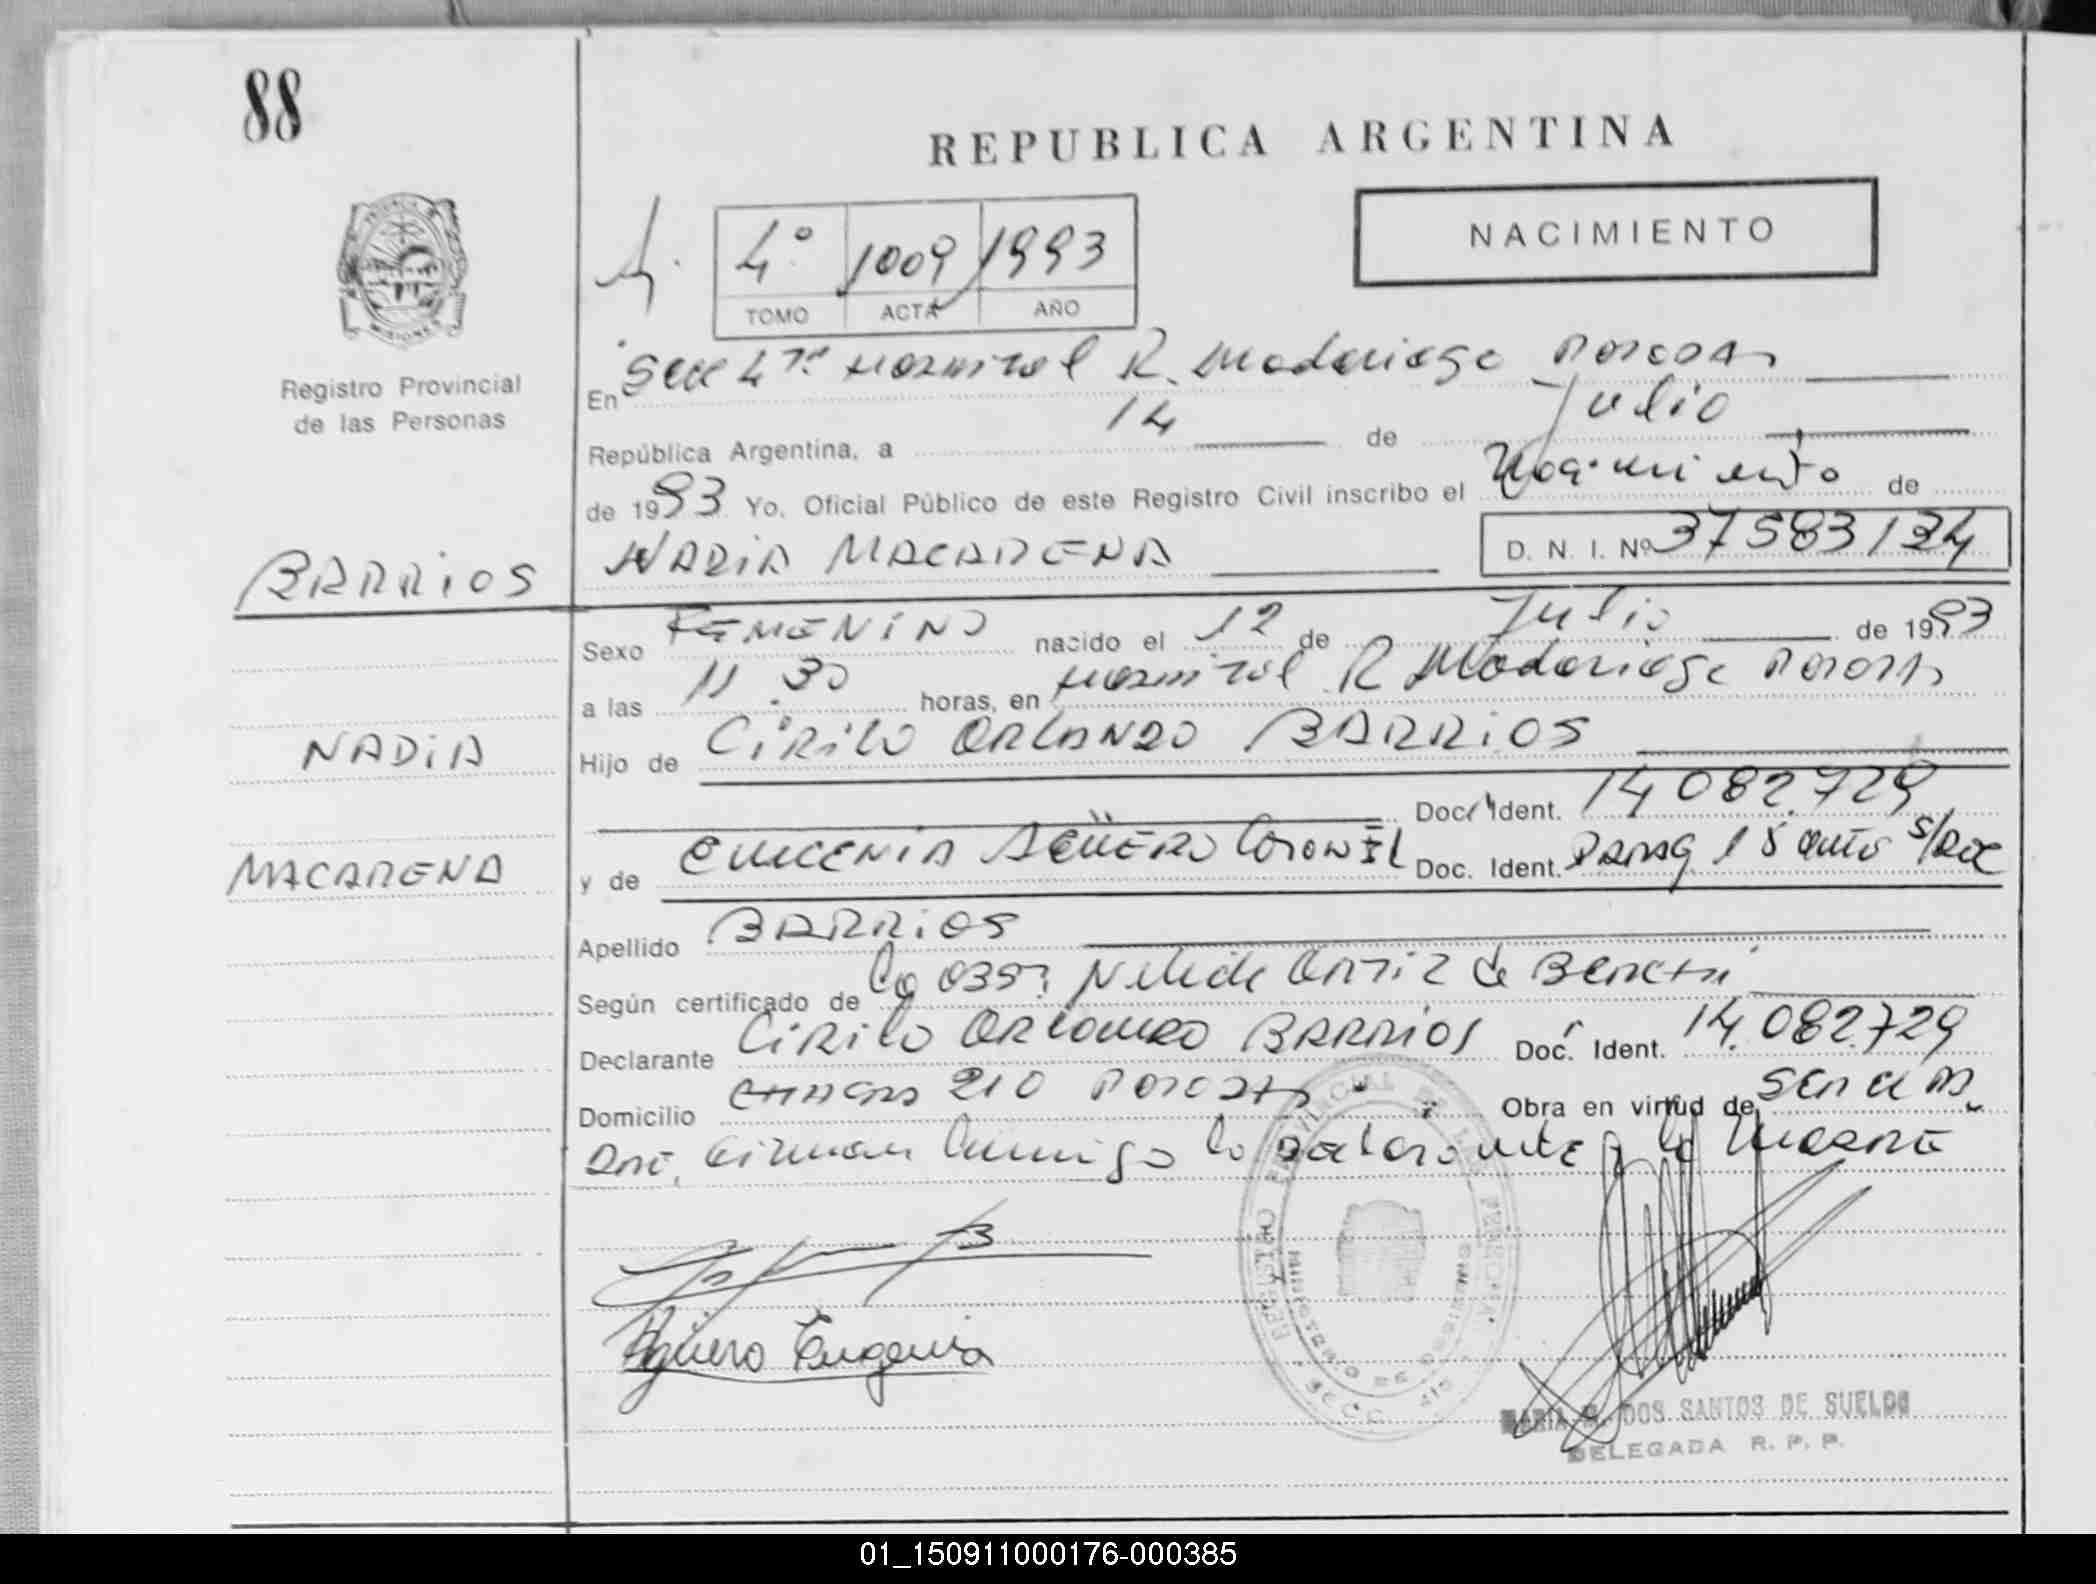 88
REPUBLICA ARGENTINA
NACIMIENTO
4º 1009 1993
TOMO ACTA AÑO
Registro Provincial
de las Personas
En Secc 4ta Hospital R. Madariaga Posadas
República Argentina, a 14 de Julio
de 1993 Yo, Oficial Público de este Registro Civil inscribo el Nacimiento de
NADIA MACARENA D. N. I. Nº 37583134
BARRIOS
Sexo FEMENINO nacido el 12 de Julio de 1993
a las 11:30 horas, en Hospital R Madariaga Posadas
NADIA
Hijo de CIRILO ORLANDO BARRIOS
Doc. Ident. 14.082.729
MACARENA
y de EUGENIA AGÜERO Coronel Doc. Ident. Parag 18 años s/Doc
Apellido BARRIOS
Según certificado de la Obst. Nelida Ortiz de
Declarante CIRILO ORLANDO BARRIOS Doc. Ident. 14.082.729
Domicilio Chacra 210 Posadas Obra en virtud de ser el pa
dre, firman conmigo la declarante y la Madre
Agüero Eugenia
REGISTRO PROVINCIAL DE LAS PERSONAS
MINISTERIO DE GOBIERNO
MARIA DOS SANTOS DE SUELDO
DELEGADA R. P. P.
01_150911000176-000385